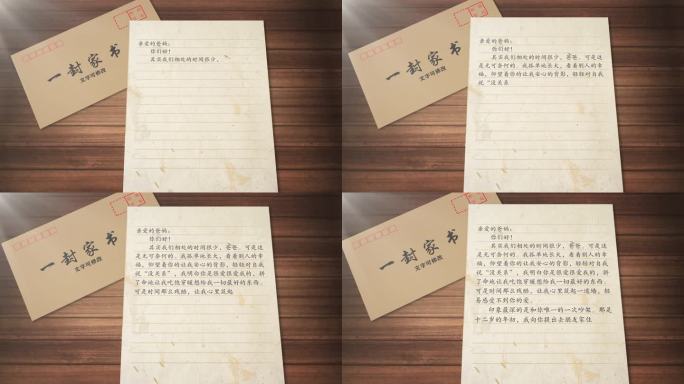 一封家书
文字可修改
亲爱的爸妈：
你们好！
其实我们相处的时间很少，
一封家书
文字可修改
亲爱的爸妈：
你们好！
其实我们相处的时间很少，爸爸，可是这
是无可奈何的，我孤单地长大，看着别人的幸
福，仰望着你的让我安心的背影，轻轻对自我
说“没关系
一封家书
文字可修改
亲爱的爸妈：
你们好！
其实我们相处的时间很少，爸爸，可是这
是无可奈何的，我孤单地长大，看着别人的幸
福，仰望着你的让我安心的背影，轻轻对自我
说“没关系”，我明白你是很爱很爱我的，拼
了命地让我吃饱穿暖想给我一切最好的东西，
可是时间那么残酷，让我心里筑起
一封家书
文字可修改
亲爱的爸妈：
你们好！
其实我们相处的时间很少，爸爸，可是这
是无可奈何的，我孤单地长大，看着别人的幸
福，仰望着你的让我安心的背影，轻轻对自我
说“没关系”，我明白你是很爱很爱我的，拼
了命地让我吃饱穿暖想给我一切最好的东西，
可是时间那么残酷，让我心里筑起一道墙，轻
易感受不到你的爱。
印象最深的是和你唯一的一次吵架，那是
十二岁的年初，我向你提出去朋友家住